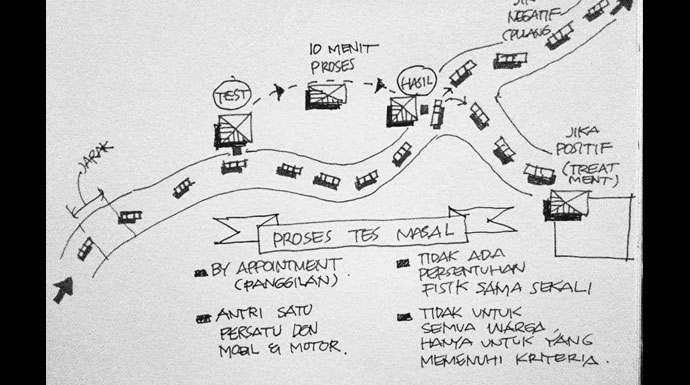 JIKA
NEGATIF
(PULANG)
10 MENIT
PROSES
TEST
HASIL
JARAK
JIKA
POSITIF
(TREAT
MENT)
PROSES TES MASAL
BY APPOINTMENT
(PANGGILAN)
ANTRI SATU
PERSATU DGN
MOBIL & MOTOR.
TIDAK ADA
PERSENTUHAN
FISIK SAMA SEKALI
TIDAK UNTUK
SEMUA WARGA,
HANYA UNTUK YANG
MEMENUHI KRITERIA.